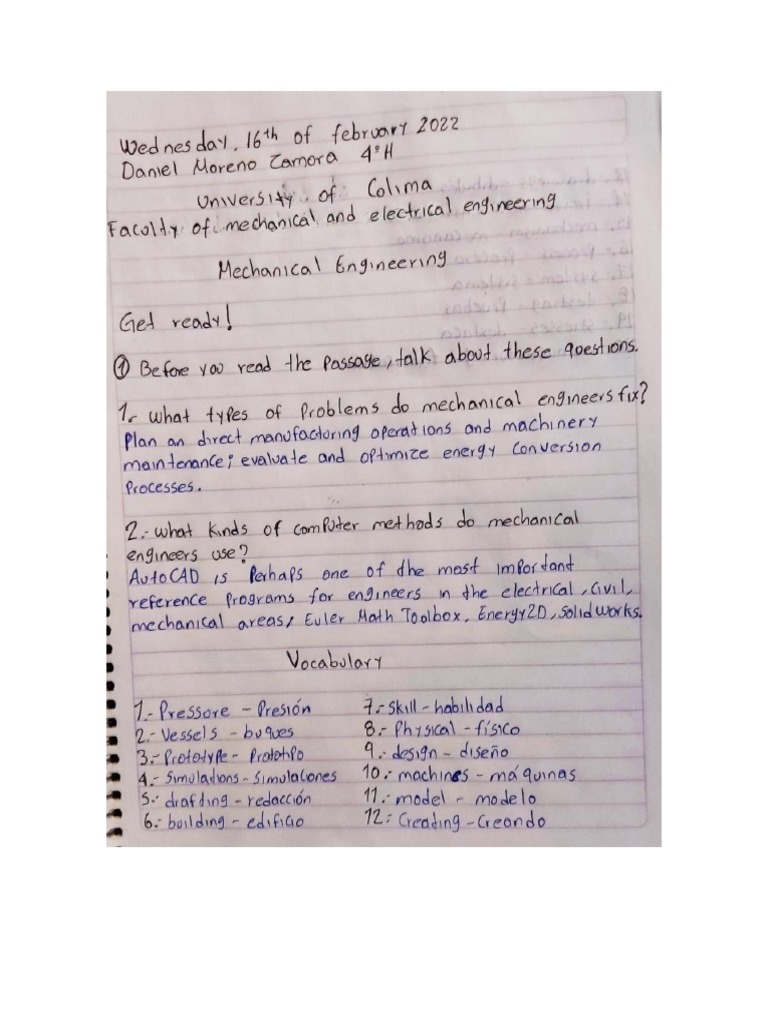 Wednesday, 16th of february 2022
Daniel Moreno Zamora 4°H
University of Colima
Faculty of mechanical and electrical engineering
Mechanical Engineering
Get ready!
① Before you read the passage, talk about these questions.
1.- What types of problems do mechanical engineers fix?
Plan an direct manufactoring operations and machinery
maintenance; evaluate and optimize energy conversion
processes.
2.- What kinds of computer methods do mechanical
engineers use?
AutoCAD is perhaps one of the most important
reference programs for engineers in the electrical, civil,
mechanical areas, Euler Math Toolbox, Energy2D, SolidWorks.
Vocabulary
1.- Pressore - Presión
2.- Vessels - buques
3.- Prototype - Prototipo
4.- Simulations - Simulaciones
5.- drafting - redacción
6.- building - edificio
7.- Skill - habilidad
8.- Physical - físico
9.- design - diseño
10.- machines - máquinas
11.- model - modelo
12.- Creating - Creando